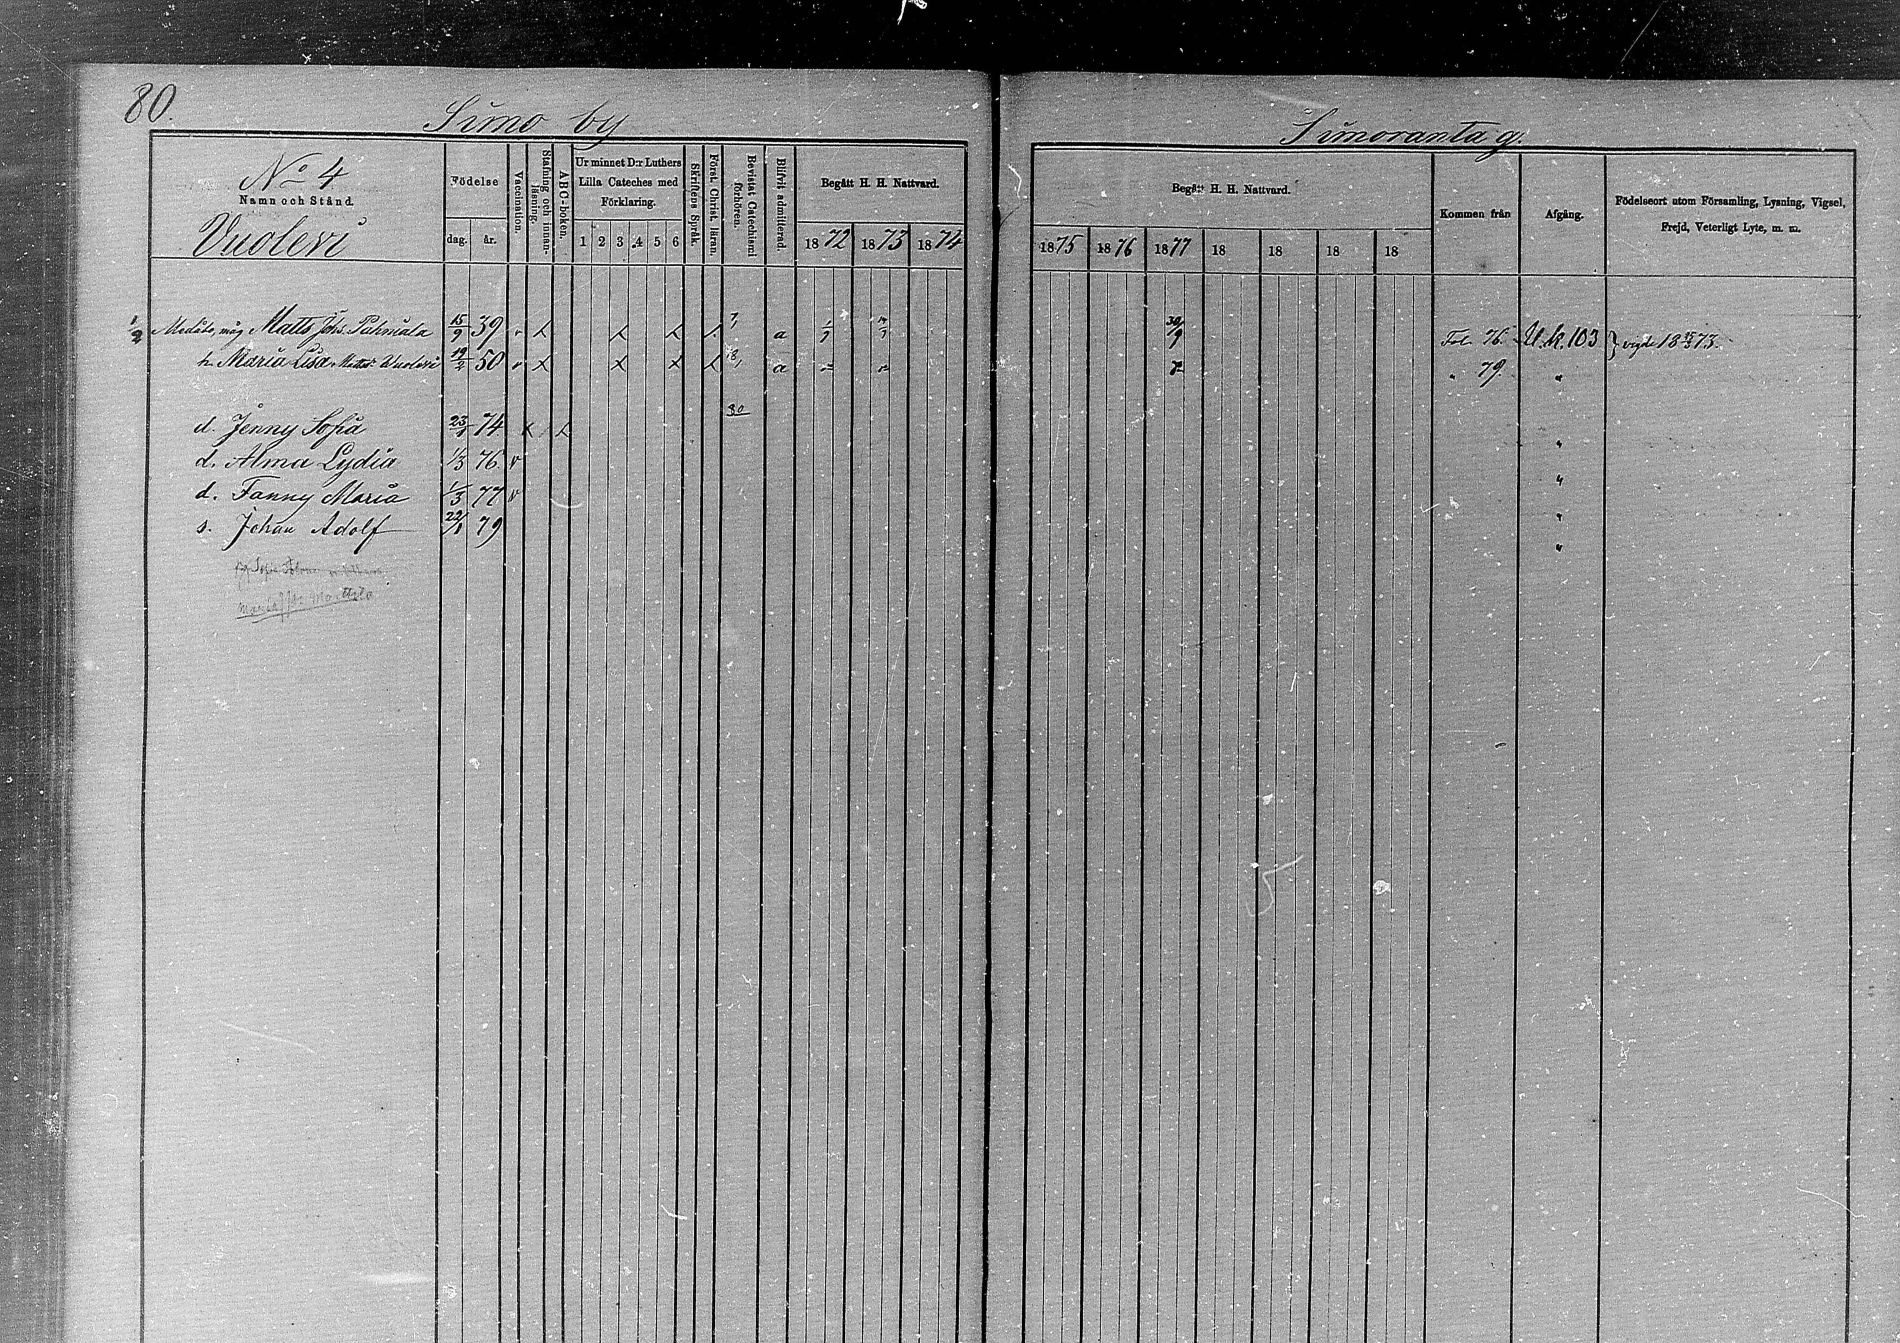 80.
Simo by
Simoranta g.
No 4
Namn och Stånd.
Vuolevi
Födelse
dag. år.
Vaccination.
Stafning och innanläsning.
ABC-boken.
Ur minnet D:r Luthers
Lilla Cateches med
Förklaring.
1 2 3 4 5 6
Skriftens Språk.
Först. Christ. läran.
Bevistat Catechismi förhören.
Blifvit admitterad.
Begått H. H. Nattvard.
1872 1873 1874
Begått H. H. Nattvard.
1875 1876 1877 18 18 18 18
Kommen från
Afgång.
Födelseort utom Församling, Lysning, Vigsel,
Frejd, Veterligt Lyte, m. m.
1/2 måg Matts Joh:s. 15/9 39 a Fol. 76. U.k. 103 } vigde 18 73.
h. Maria Lisa Matts Vuolevi 50 a " 79. "
d. Jenny Sofia 23/1 74 "
d. Alma Lydia 1/3 76 v "
d. Fanny Maria 1/3 77 v "
s. Johan Adolf 22/1 79 "